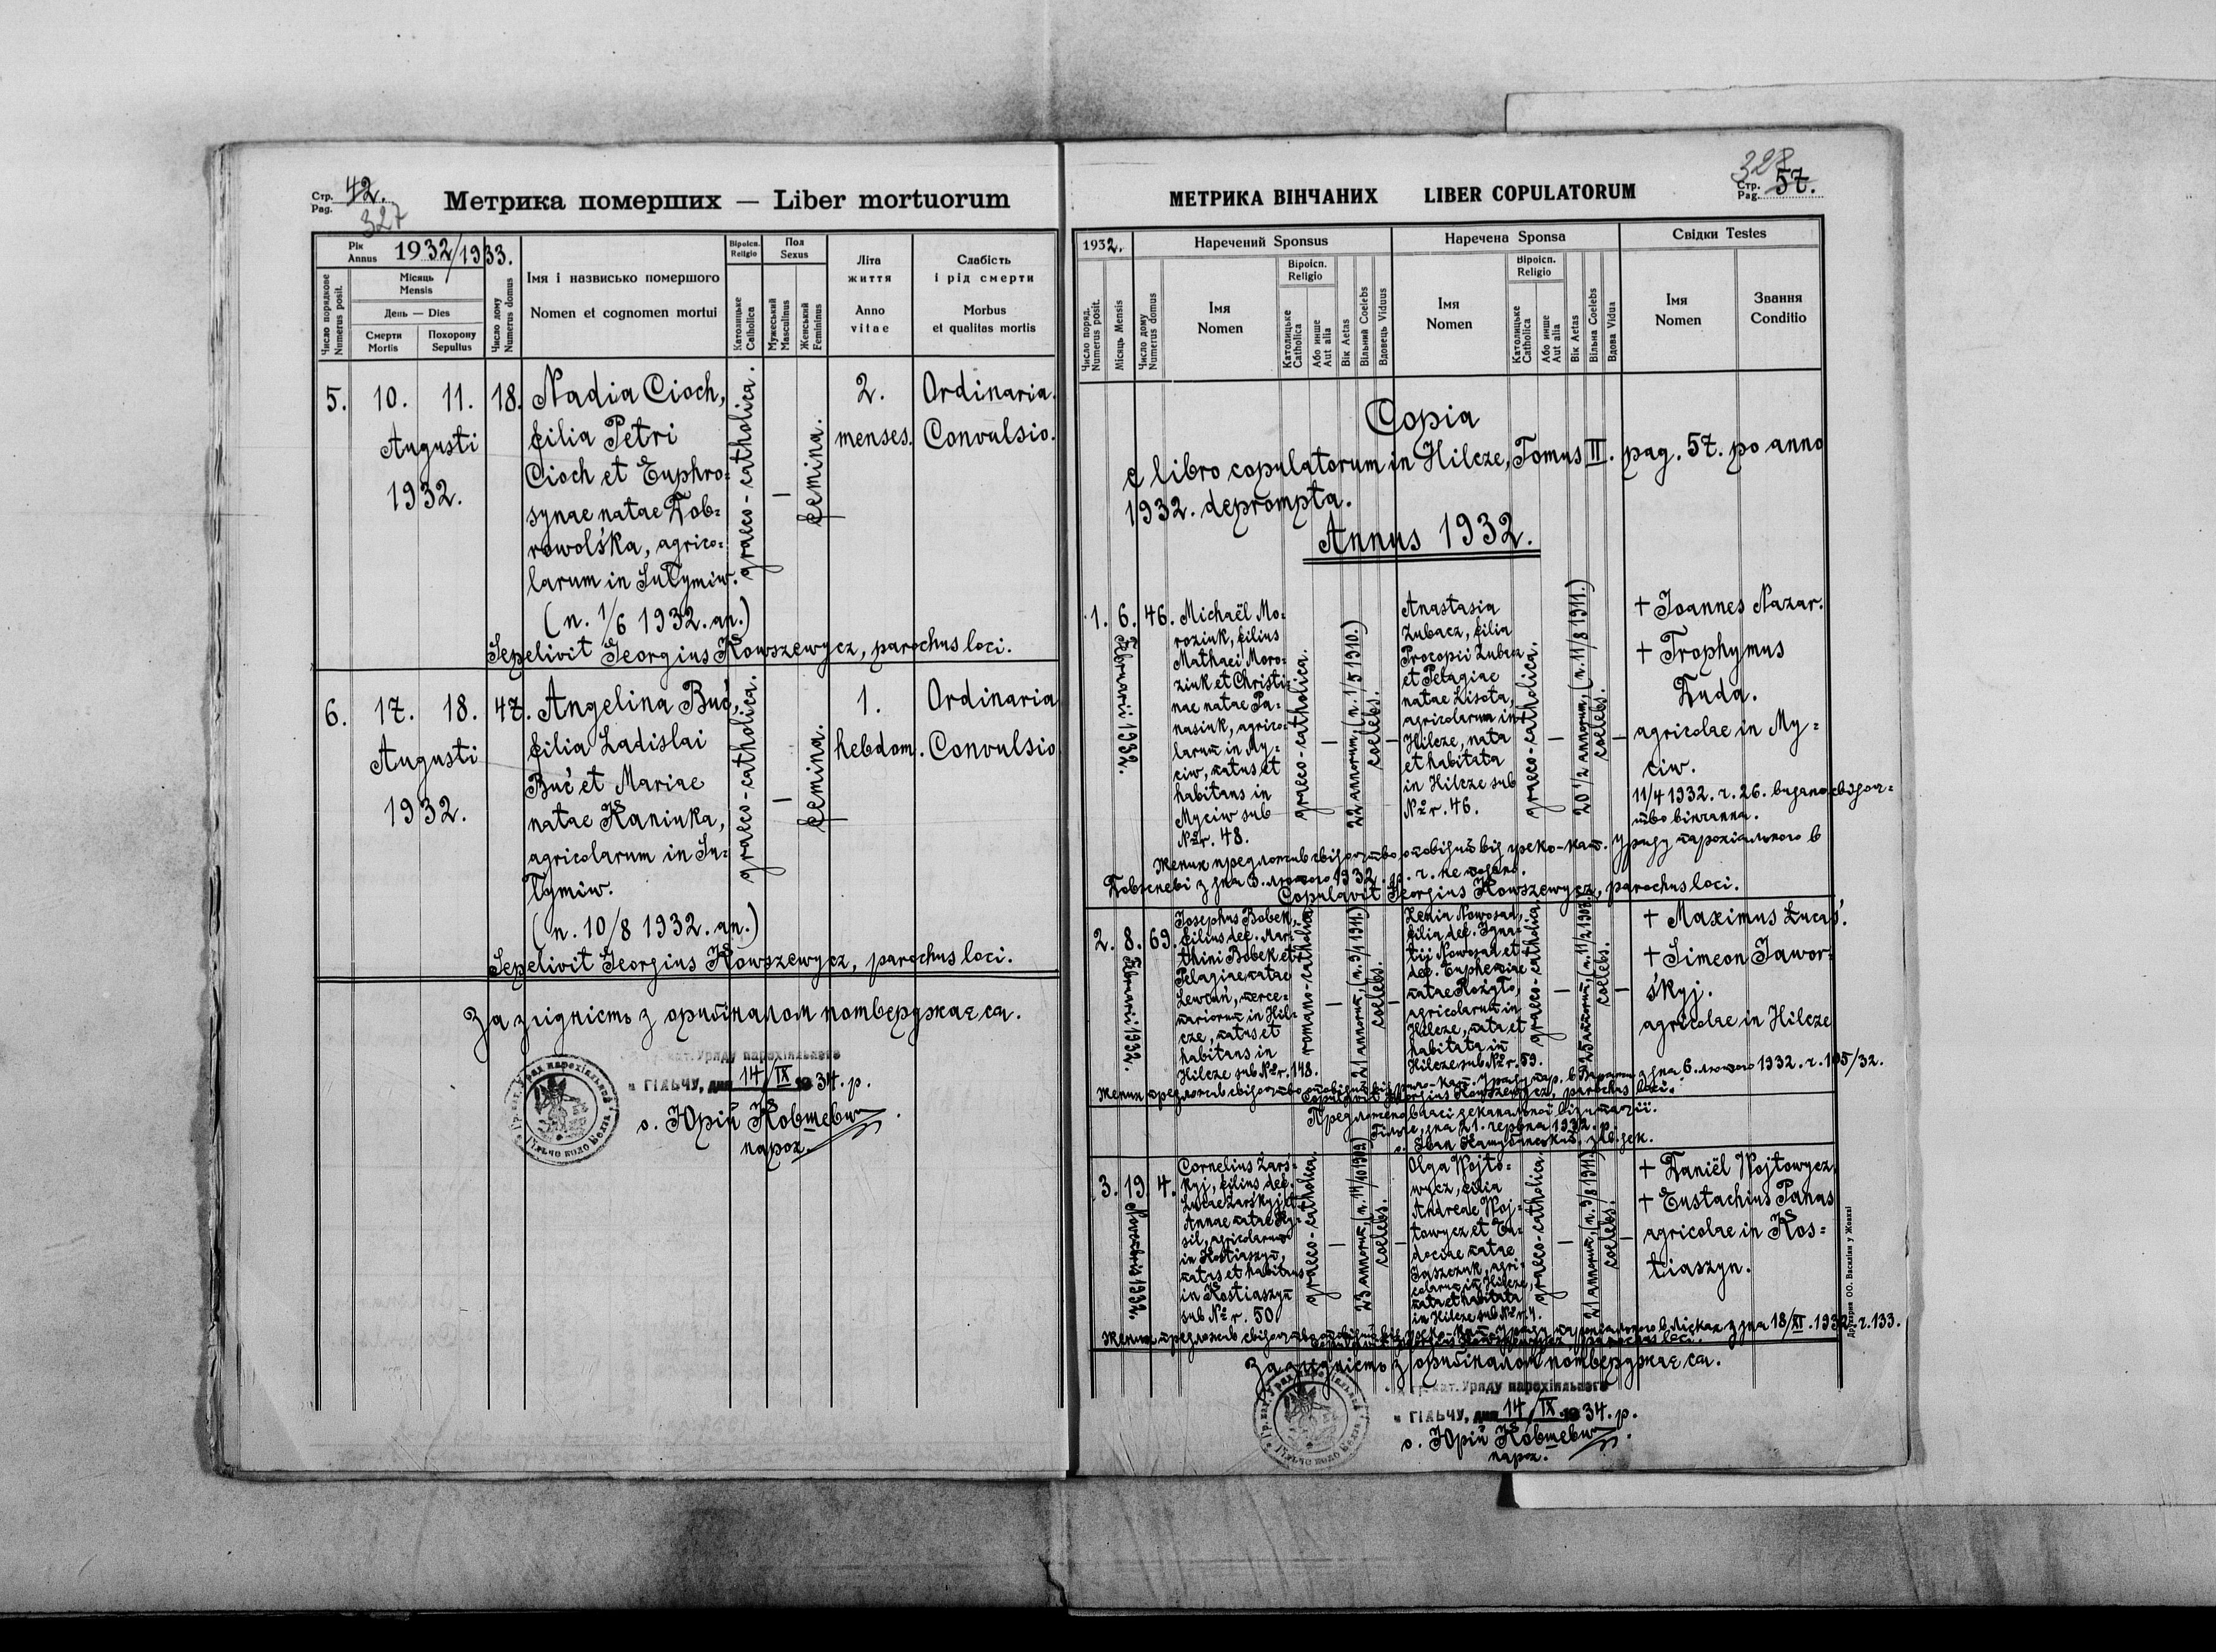 Стр. Pag. 42.
327
Метрика померших — Liber mortuorum
Рік Annus 1932/1933.
Число порядкове Numerus posit.
Місяць Mensis
День — Dies
Смерти Mortis
Похорону Sepultus
Число дому Numerus domus
Імя і назвисько помершого
Nomen et cognomen mortui
Віроісп. Religio
Католицьке Catholica
Пол Sexus
Мужеський Masculinus
Женський Femininus
Літа життя
Anno vitae
Слабість і рід смерти
Morbus et qualitas mortis
5. 10. 11. 18. Nadia Cioch, 2. Ordinaria.
Augusti filia Petri menses. Convulsio.
Cioch et Euphro=
1932. synae natae Dob=
rowolśka, agrico=
larum in Sulymiw.
(n. 1/6 1932. an.)
graeco-catholica.
—
femina.
Sepelivit Georgius Kowszewycz, parochus loci.
6. 17. 18. 47. Angelina Buć, 1. Ordinaria
Augusti filia Ladislai hebdom. Convulsio
Buć et Mariae
1932. natae Kaniuka,
agricolarum in Su=
lymiw.
(n. 10/8 1932. an.)
graeco-catholica.
—
femina.
Sepelivit Georgius Kowszewycz, parochus loci.
За згідність з оригіналом потверджаєся.
кат. Уряду парохіяльного
ГІЛЬЧУ, дня 14/IX 1934. р.
о. Юрій Ковшевич
парох.
328
Стр. Pag. 57.
МЕТРИКА ВІНЧАНИХ LIBER COPULATORUM
1932.
Наречений Sponsus
Наречена Sponsa
Свідки Testes
Число поряд. Numerus posit.
Місяць Mensis
Число дому Numerus domus
Імя Nomen
Віроісп. Religio
Католицьке Catholica
Або инше Aut alia
Вік Aetas
Вільний Coelebs
Вдовець Viduus
Імя Nomen
Віроісп. Religio
Католицьке Catholica
Або инше Aut alia
Вік Aetas
Вільна Coelebs
Вдова Vidua
Імя Nomen
Звання Conditio
Copia
e libro copulatorum in Hilcze, Tomus II. pag. 57. po anno
1932. deprompta.
Annus 1932.
1. 6. Februarii 1932. 46.
Michaël Mo=
roziuk, filius
Mathaei Moro=
ziuk et Christi=
nae natae Pa=
nasiuk, agrico=
larum in My=
ciw, natus et
habitans in
Myciw sub
Nr. 48.
graeco-catholica.
—
22 annorum, (n. 1/5 1910.)
coelebs.
—
Anastasia
Zubacz, filia
Procopii Zubacz
et Pelagiae
natae Lisota,
agricolarum in
Hilcze, nata
et habitata
in Hilcze sub
Nr. 46.
graeco-catholica.
—
20 1/2 annorum, (n. 11/8 1911.)
coelebs.
—
+ Joannes Nazar.
+ Trophymus
Duda.
agricolae in My=
ciw.
11/4 1932. ч. 26. видано свідоц=
тво вінчання.
Жених предложив свідоцтво оповідий від греко-кат. Уряду парохіяльного в
з дня 6. лютого 1932. р. ч. не подано.
Copulavit Georgius Kowszewycz, parochus loci.
2. 8. Februarii 1932. 69.
Josephus Bobek,
filius def. Mar=
thini Bobek et
Pelagiae natae
Lewcun, merce=
nariorum in Hil=
cze, natus et
habitans in
Hilcze sub Nr. 148.
romano-catholica.
—
21 annorum,
coelebs.
—
Xenia Nowosad,
filia def. Igna=
tij Nowosad et
def. Euphemiae
natae Rożyło,
agricolarum in
Hilcze, nata et
habitata in
Hilcze sub Nr. 59.
graeco-catholica.
—
25 annorum,
coelebs.
—
+ Maximus Łucaś.
+ Simeon Jawor=
śkyj.
agricolae in Hilcze
Жених предложив свідоцтво оповідий від з дня 6. лютого 1932. ч. 105/32.
Copulavit Georgius Kowszewycz, parochus loci.
Предложено в часі деканальної візитації.
Гільче, дня 21. червня 1932. р.
3. 19. Novembris 1932. 4.
Cornelius Zarś=
kyj, filius def.
Lucae Zarśkyj et
Annae natae Ky=
sil, agricolarum
in Kostiaszyn,
natus et habitans
in Kostiaszyn
sub Nr. 50
graeco-catholica.
—
23 annorum,
coelebs.
—
Olga Wojto=
wycz, filia
Andreae Woj=
towycz et Eu=
dociae natae
Jaszczuk, agri=
colarum in Hilcze,
nata et habitata
in Hilcze sub Nr. 4.
graeco-catholica.
—
21 annorum, (n. 9/8 1911.)
coelebs.
—
+ Daniël Wojtowycz
+ Eustachius Panas
agricolae in Kos=
tiaszyn.
Жених предложив свідоцтво оповідий від греко-кат. Уряду парохіяльного в Лісках з дня 18/XI. 1932. ч. 133.
Copulavit Georgius Kowszewycz, parochus loci.
За згідність з оригіналом потверджаєся.
кат. Уряду парохіяльного
ГІЛЬЧУ, дня 14/IX 1934. р.
о. Юрій Ковшевич
парох.
Друкарня ОО. Василіян у Жовкві